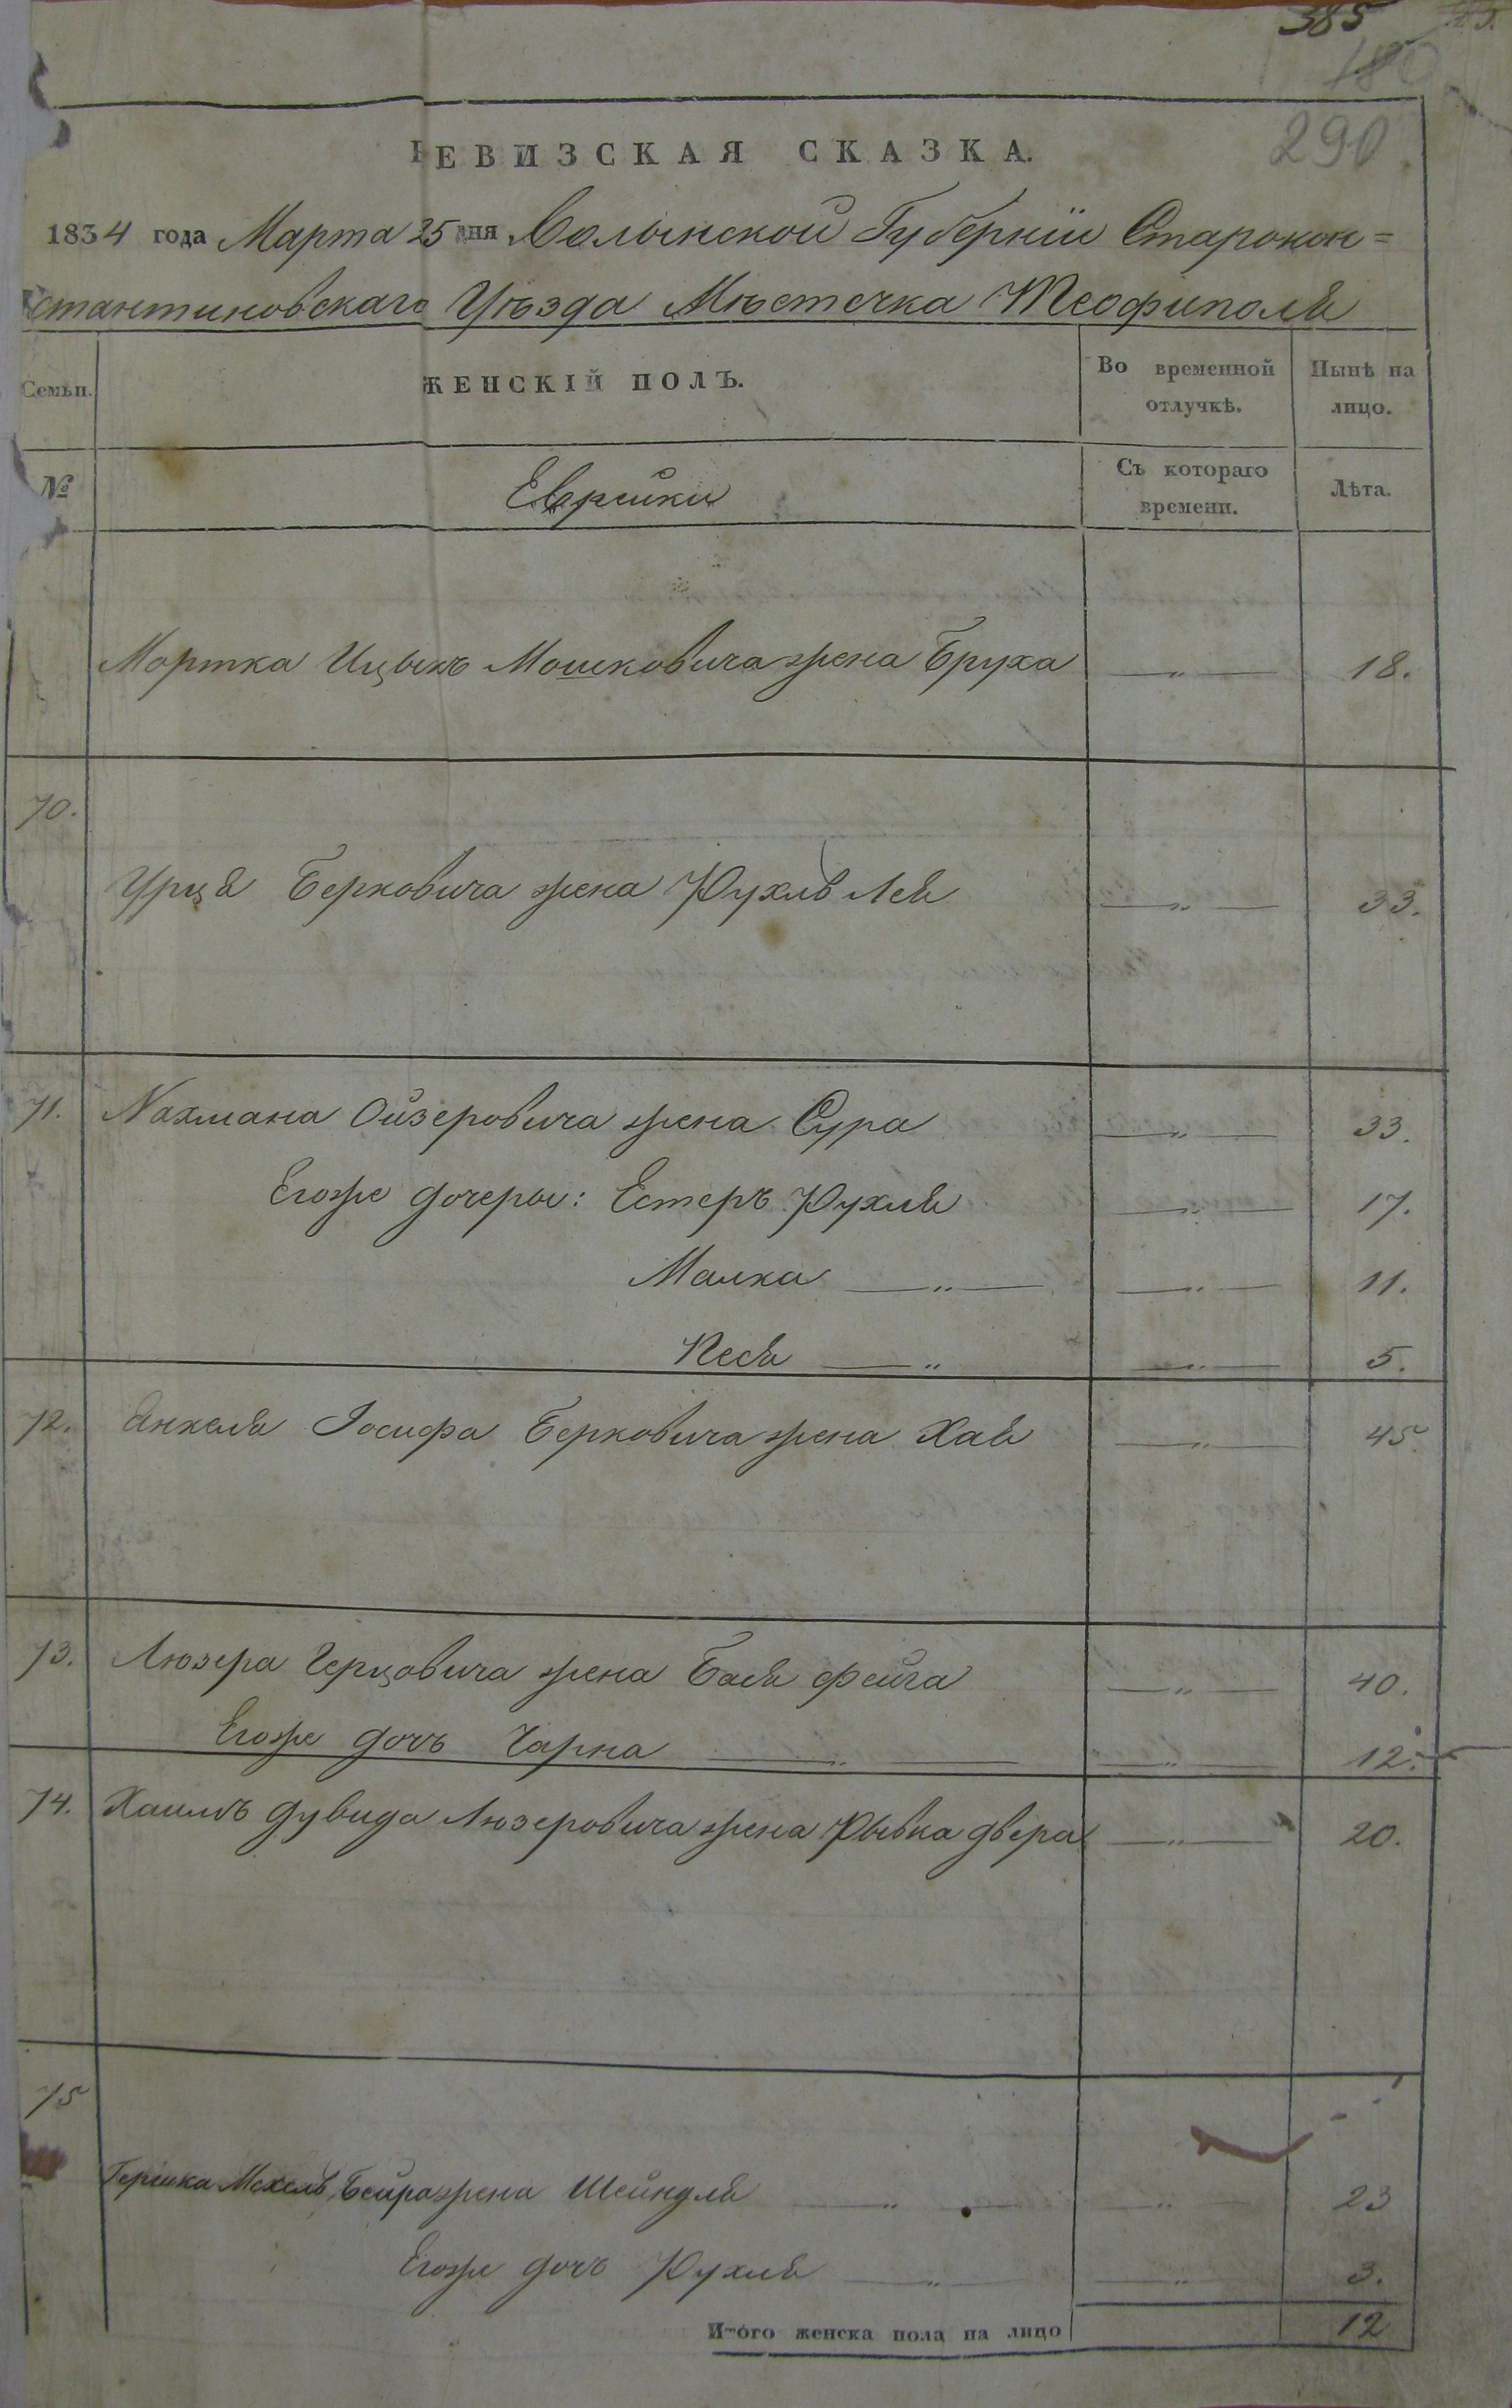 385
180
290
РЕВИЗСКАЯ СКАЗКА.
1834 года Марта 25 дня Волынской Губернїи Старокон=
стантиновскаго Уѣзда Мѣстечка Теофиполя
Семьи.
ЖЕНСКІЙ ПОЛЪ.
Во временной отлучкѣ.
Нынѣ на лицо.
№
Еврейки
Съ котораго времени.
Лѣта.
Мортка Ицыкъ Мошковича жена Бруха — „ — 18.
70.
Урця Берковича жена Рухль Лея — „ — 33.
71. Нахмана Ойзеровича жена Сура — „ — 33.
Егоже дочеры: Естеръ Рухля — „ — 17.
Малка — „ — — „ — 11.
Песя — „ — „ — 5.
72. Янкеля Іосифа Берковича жена Хая — „ — 45.
73. Люзера Герцовича жена Бася Фейга — „ — 40.
Егоже дочь Чарна — „ — — „ — 12.
74. Хаимъ Дувида Люзеровича жена Рывка Двера — „ — 20.
75
Гершка Мехель Бейра жена Шейндля — „ — — „ — 23
Егоже дочь Рухля — „ — — „ — 3.
Итого женска пола на лицо 12